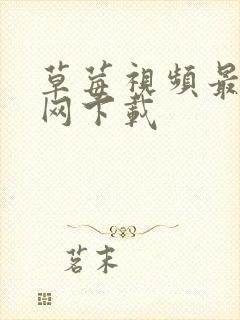 草莓視頻最
网下載
茗末